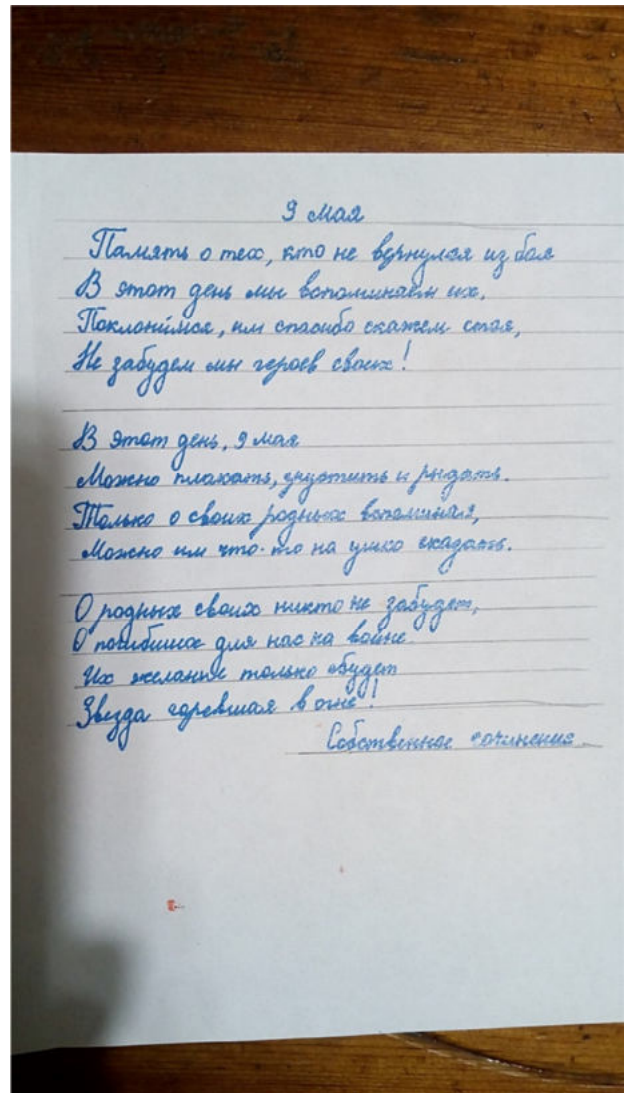 9 мая
Память о тех, кто не вернулся из боя
В этот день мы вспоминаем их,
Поклонимся, им спасибо скажем стоя,
Не забудем мы героев своих!
В этот день, 9 мая
Можно плакать, грустить и рыдать.
Только о своих родных вспоминая,
Можно им что-то на ушко сказать.
О родных своих никто не забудет,
О погибших для нас на войне.
Их желание только сбудет
Звезда горевшая в огне!
Собственное сочинение